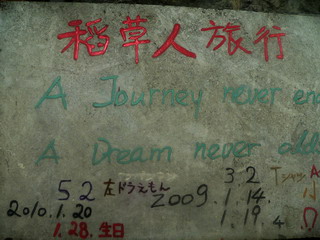 稻草人旅行
A Journey never en
A Dream never add
52 左ドラえもん 2009. 1.14.
32 Tシャツ A
2010.1.20 1.19. 4
1.28. 生日